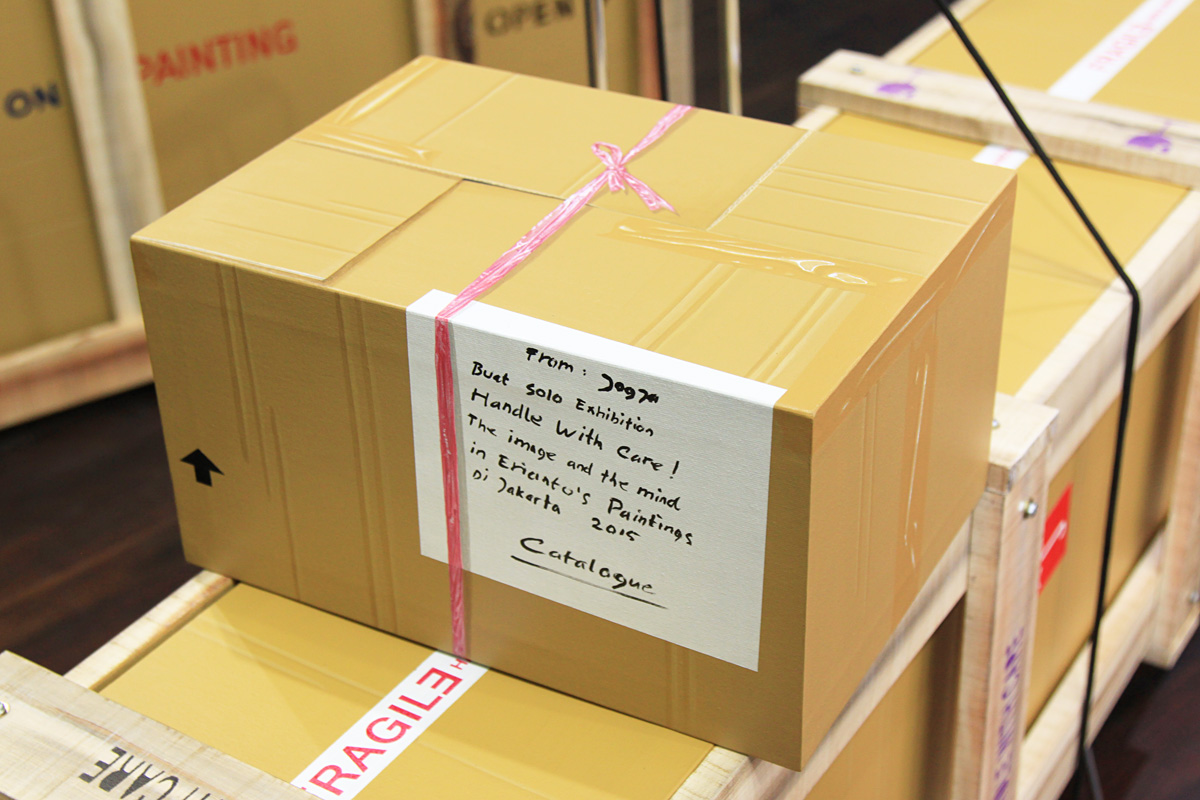 ON
PAINTING
OPEN
FRAGILE
From : Jogja
Buat Solo Exhibition
Handle With Care !
The image and the mind
in Ericanto's Paintings
Di Jakarta 2015
Catalogue
FRAGILE H
CARE